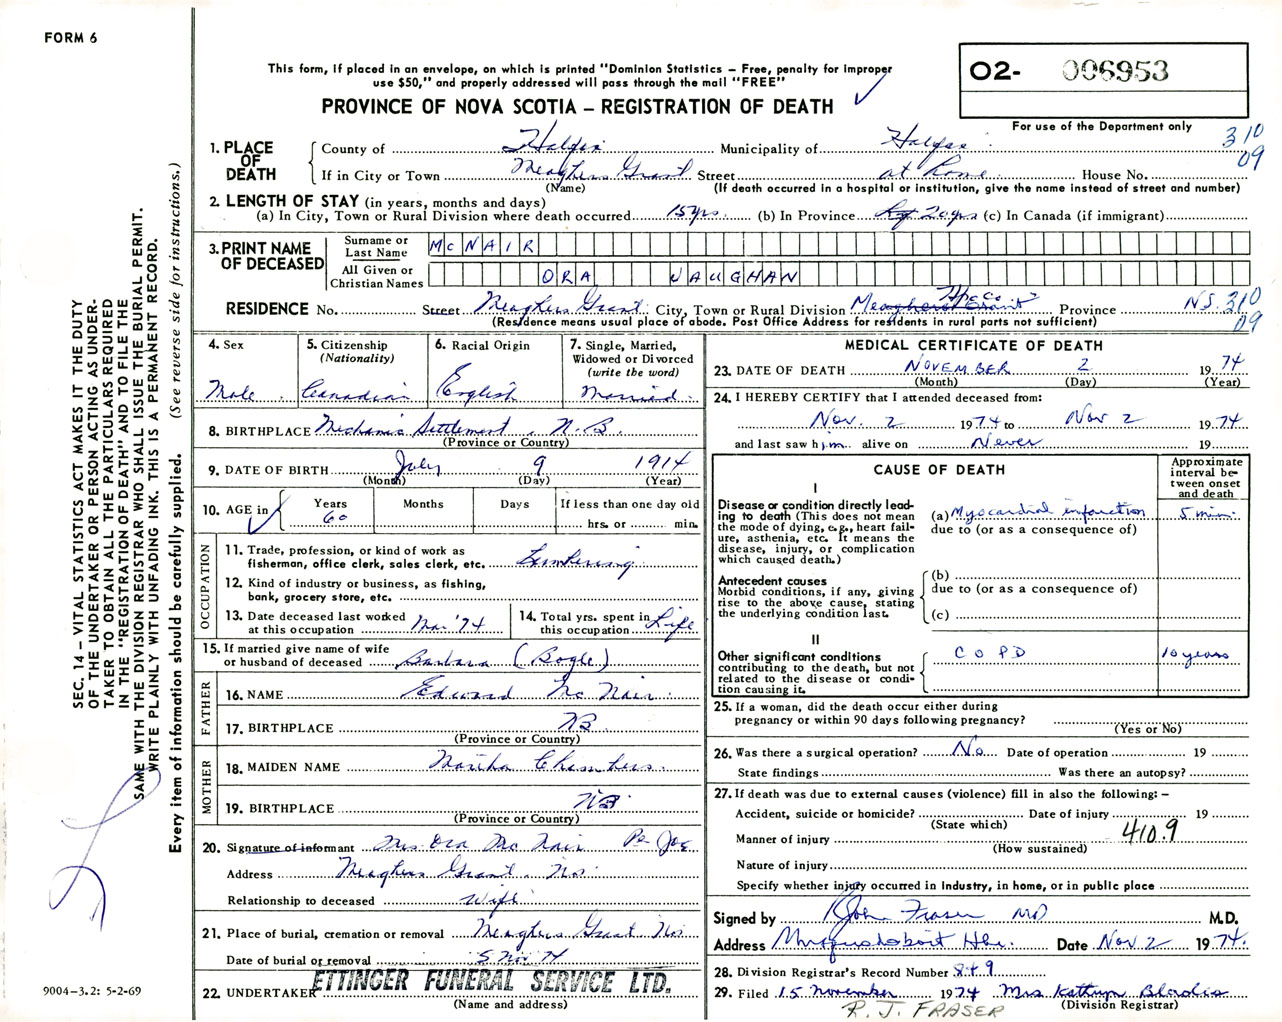 FORM 6
This form, if placed in an envelope, on which is printed "Dominion Statistics – Free, penalty for improper
use $50," and properly addressed will pass through the mail "FREE"
PROVINCE OF NOVA SCOTIA – REGISTRATION OF DEATH
O2- 006953
For use of the Department only
310
09
1. PLACE OF DEATH
County of Halifax Municipality of Halifax
If in City or Town Meaghers Grant Street at home House No.
(Name) (If death occurred in a hospital or institution, give the name instead of street and number)
2. LENGTH OF STAY (in years, months and days)
(a) In City, Town or Rural Division where death occurred 15 yrs. (b) In Province 20 yrs (c) In Canada (if immigrant)
3. PRINT NAME OF DECEASED
Surname or Last Name McNAIR
All Given or Christian Names ORA VAUGHAN
RESIDENCE No. Street Meaghers Grant City, Town or Rural Division Meaghers Grant Hfx Co Province N.S. 310
09
(Residence means usual place of abode. Post Office Address for residents in rural parts not sufficient)
4. Sex
Male
5. Citizenship
(Nationality)
Canadian
6. Racial Origin
English
7. Single, Married,
Widowed or Divorced
(write the word)
Married
8. BIRTHPLACE Mechanic Settlement, N.B.
(Province or Country)
9. DATE OF BIRTH July 9 1914
(Month) (Day) (Year)
10. AGE in Years Months Days If less than one day old
60 hrs. or min.
OCCUPATION
11. Trade, profession, or kind of work as
fisherman, office clerk, sales clerk, etc. Lumbering
12. Kind of industry or business, as fishing,
bank, grocery store, etc.
13. Date deceased last worked
at this occupation Mar '74
14. Total yrs. spent in
this occupation Life
15. If married give name of wife
or husband of deceased Barbara (Bogle)
FATHER
16. NAME Edward McNair
17. BIRTHPLACE NB
(Province or Country)
MOTHER
18. MAIDEN NAME Martha Chambers
19. BIRTHPLACE NB
(Province or Country)
20. Signature of informant Mrs. Ora McNair Per
Address Meaghers Grant, N.S.
Relationship to deceased Wife
21. Place of burial, cremation or removal Meaghers Grant N.S.
Date of burial or removal 5 Nov. 74
22. UNDERTAKER ETTINGER FUNERAL SERVICE LTD.
(Name and address)
MEDICAL CERTIFICATE OF DEATH
23. DATE OF DEATH NOVEMBER 2 1974
(Month) (Day) (Year)
24. I HEREBY CERTIFY that I attended deceased from:
Nov. 2 1974 to Nov 2 1974
and last saw him alive on Never 19
CAUSE OF DEATH
Approximate
interval be-
tween onset
and death
I
Disease or condition directly lead-
ing to death (This does not mean
the mode of dying, e.g., heart fail-
ure, asthenia, etc. It means the
disease, injury, or complication
which caused death.)
(a) Myocardial infarction 5 min.
due to (or as a consequence of)
Antecedent causes
Morbid conditions, if any, giving
rise to the above cause, stating
the underlying condition last.
(b)
due to (or as a consequence of)
(c)
II
Other significant conditions
contributing to the death, but not
related to the disease or condi-
tion causing it.
COPD 10 years
25. If a woman, did the death occur either during
pregnancy or within 90 days following pregnancy?
(Yes or No)
26. Was there a surgical operation? No Date of operation 19
State findings Was there an autopsy?
27. If death was due to external causes (violence) fill in also the following: –
Accident, suicide or homicide? Date of injury 19
(State which)
Manner of injury 410.9
(How sustained)
Nature of injury
Specify whether injury occurred in Industry, in home, or in public place
Signed by John Fraser MD M.D.
Address Musquodoboit Hbr. Date Nov 2 1974.
28. Division Registrar's Record Number 849
29. Filed 15 November 1974 Mrs Kathryn
(Division Registrar)
R. J. FRASER
SEC. 14 – VITAL STATISTICS ACT MAKES IT THE DUTY
OF THE UNDERTAKER OR PERSON ACTING AS UNDER-
TAKER TO OBTAIN ALL THE PARTICULARS REQUIRED
IN THE "REGISTRATION OF DEATH" AND TO FILE THE
SAME WITH THE DIVISION REGISTRAR WHO SHALL ISSUE THE BURIAL PERMIT.
WRITE PLAINLY WITH UNFADING INK. THIS IS A PERMANENT RECORD.
Every item of information should be carefully supplied. (See reverse side for instructions.)
9004-3.2: 5-2-69